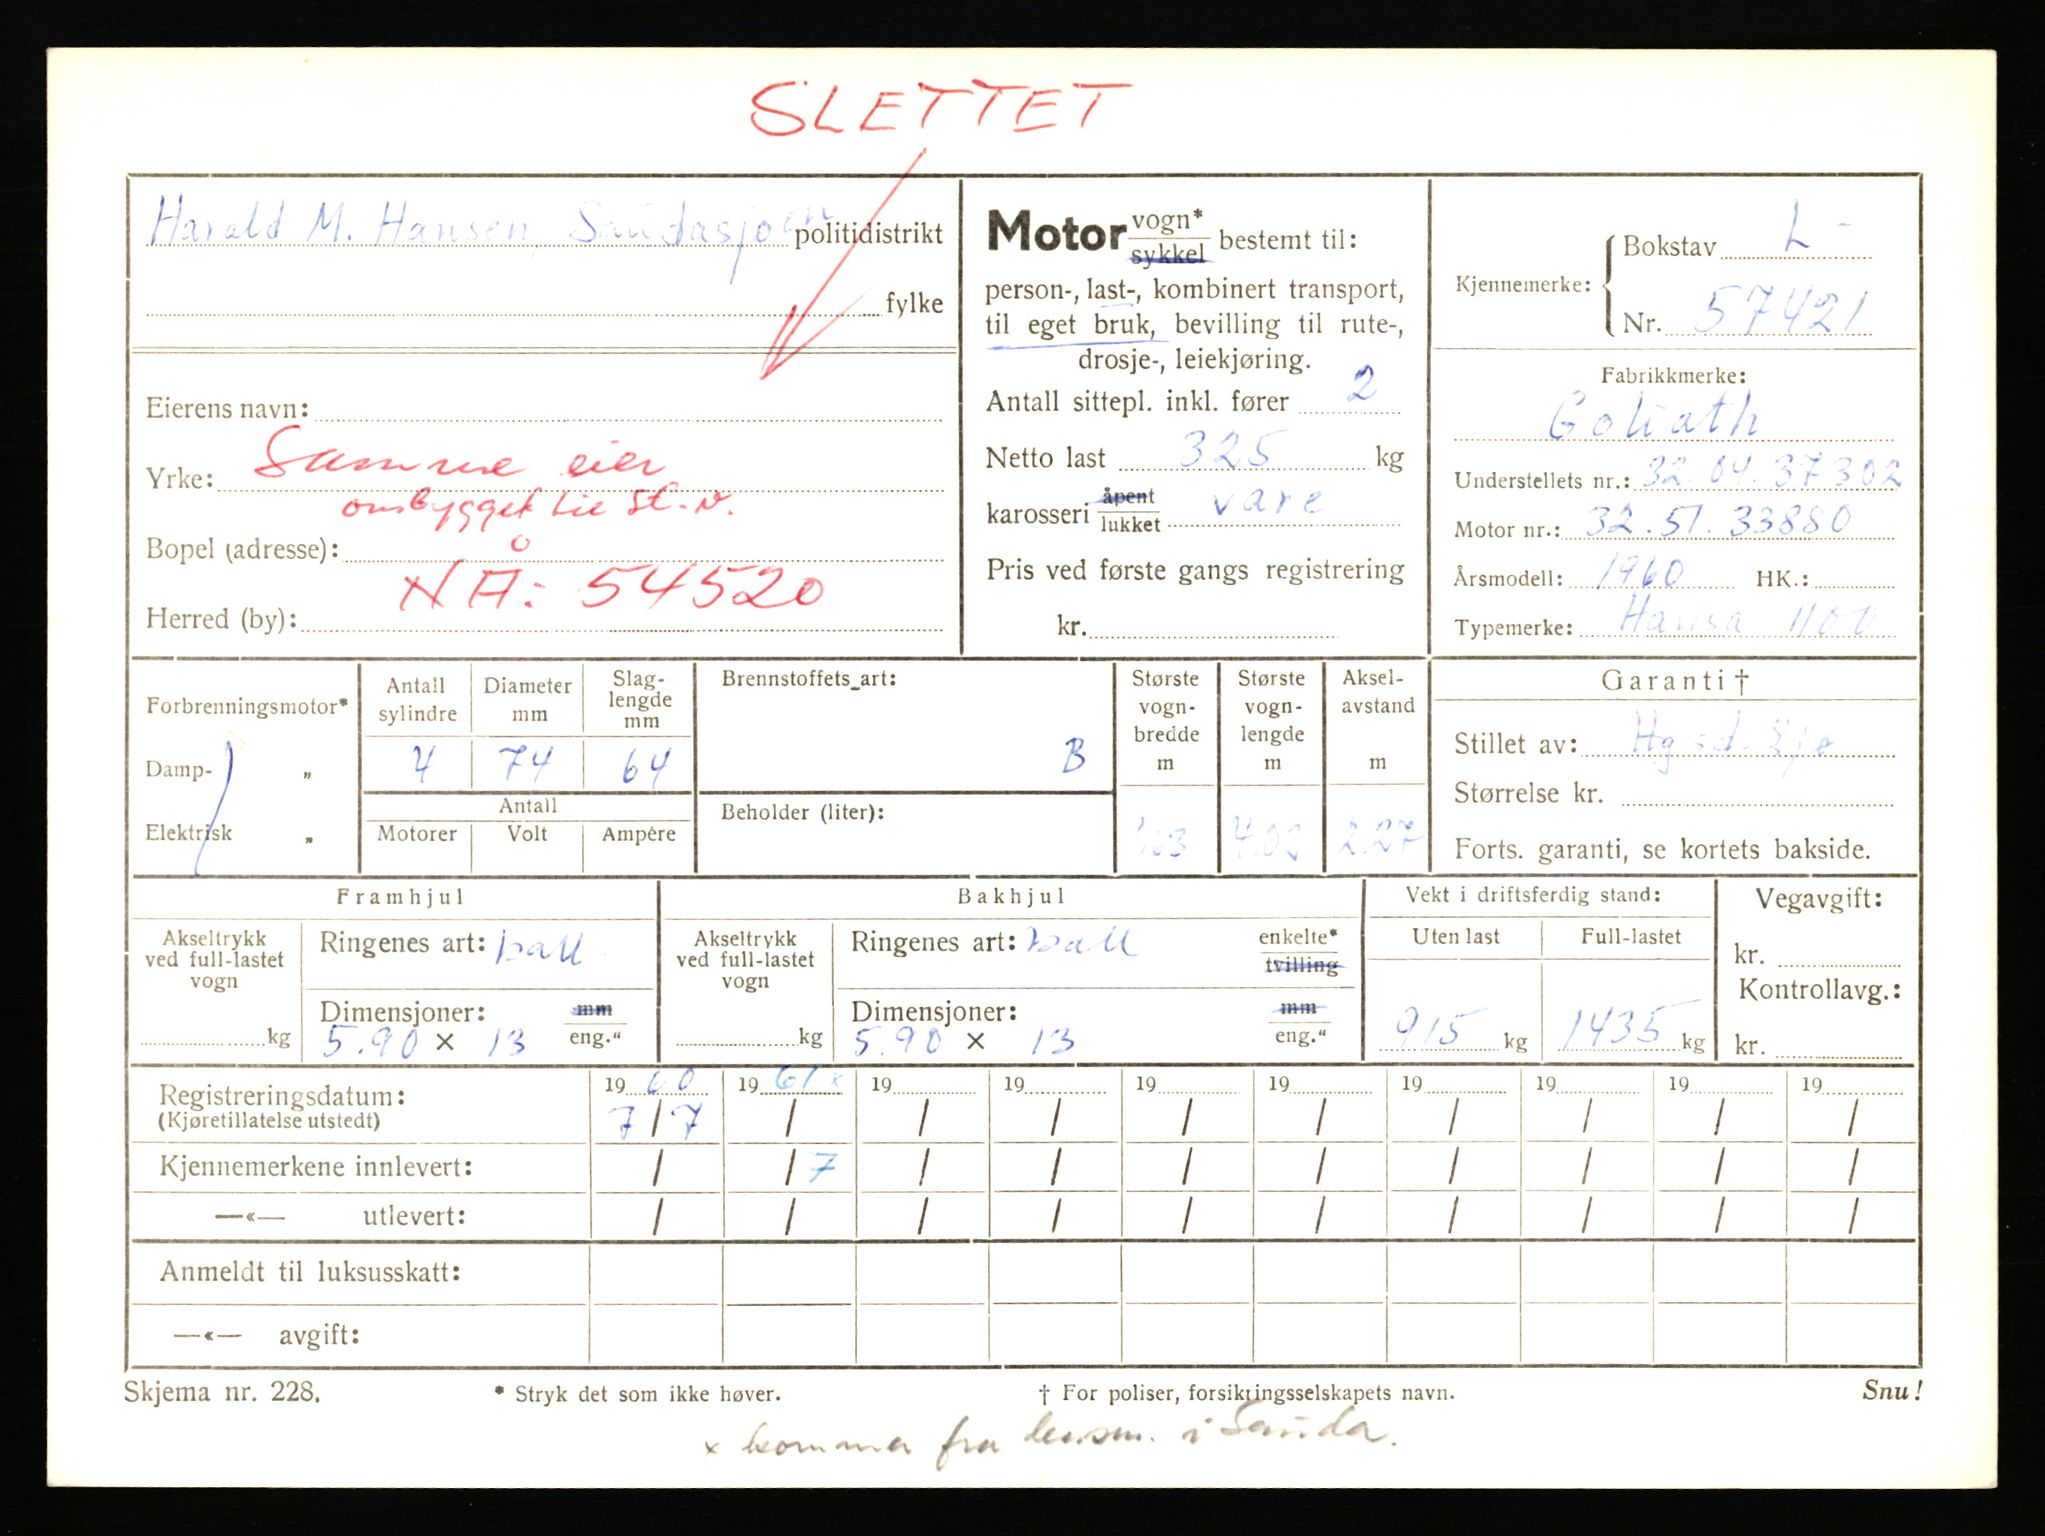 SLETTET
Harald M. Hansen, Saudasjøen politidistrikt
fylke
Eierens navn:
Yrke: Samme eier
ombygget til st.v.
Bopel (adresse):
NÅ: 54520
Herred (by):
Motor vogn* sykkel bestemt til:
person-, last-, kombinert transport,
til eget bruk, bevilling til rute-,
drosje-, leiekjøring.
Antall sittepl. inkl. fører 2
Netto last 325 kg
karosseri åpent lukket vare
Pris ved første gangs registrering
kr.
Kjennemerke: Bokstav L-
Nr. 57421
Fabrikkmerke:
Goliath
Understellets nr.: 32.04.37302
Motor nr.: 32.51.33880
Årsmodell: 1960 HK.:
Typemerke: Hansa 1100
Forbrenningsmotor*
Damp- „
Elektrisk „
Antall sylindre Diameter mm Slag-lengde mm
4 74 64
Antall
Motorer Volt Ampére
Brennstoffets art:
B
Beholder (liter):
Største vogn-bredde m Største vogn-lengde m Aksel-avstand m
1.63 4.02 2.27
Garanti †
Stillet av:
Størrelse kr.
Forts. garanti, se kortets bakside.
Framhjul
Akseltrykk ved full-lastet vogn
kg
Ringenes art: ball
Dimensjoner: mm
5.90 × 13 eng."
Bakhjul
Akseltrykk ved full-lastet vogn
kg
Ringenes art: ball enkelte* tvilling
Dimensjoner: mm
5.90 × 13 eng."
Vekt i driftsferdig stand:
Uten last Full-lastet
915 kg 1435 kg
Vegavgift:
kr.
Kontrollavg.:
kr.
Registreringsdatum: 1960 1961 x 19 19 19 19 19 19 19 19
(Kjøretillatelse utstedt) 7/7 / / / / / / / / /
Kjennemerkene innlevert: / /7 / / / / / / / /
—«— utlevert: / / / / / / / / / /
Anmeldt til luksusskatt:
—«— avgift:
Skjema nr. 228. * Stryk det som ikke høver. † For poliser, forsikringsselskapets navn. Snu!
x kommer fra lensm. i Sauda.